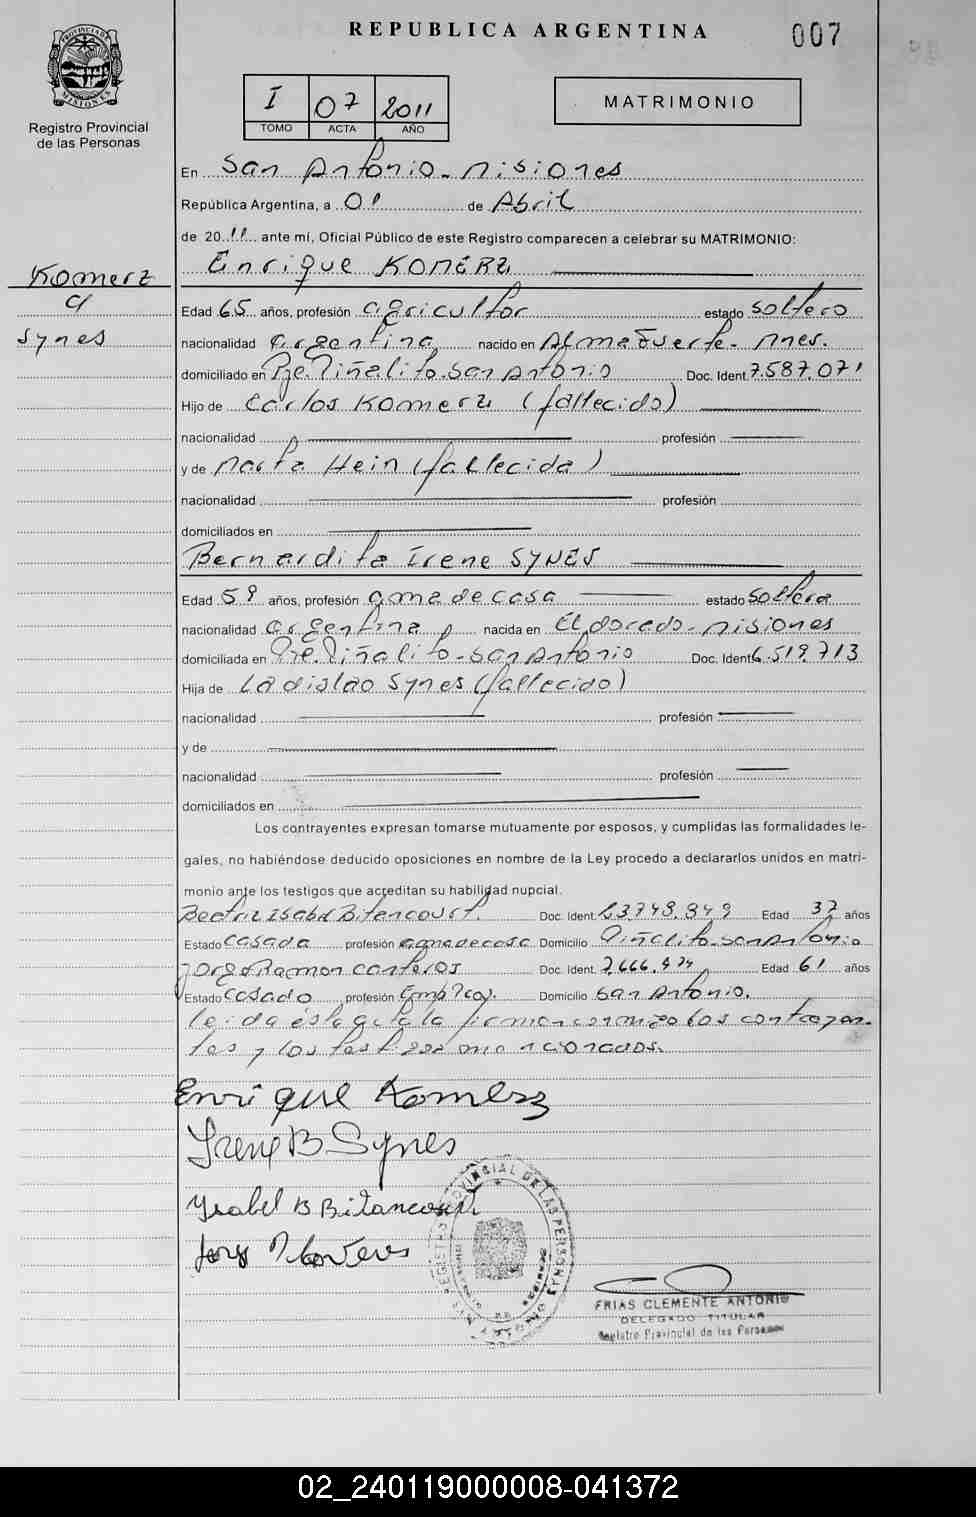 REPUBLICA ARGENTINA
007
PROVINCIA DE MISIONES
Registro Provincial
de las Personas
I 07 2011
TOMO ACTA AÑO
MATRIMONIO
En San Antonio - Misiones
República Argentina, a 01 de Abril
de 2011 ante mí, Oficial Público de este Registro comparecen a celebrar su MATRIMONIO:
Enrique KOMERZ
Komerz
c/
Synes
Edad 65 años, profesión agricultor estado soltero
nacionalidad argentina nacido en Almafuerte - Mnes.
domiciliado en Pje. Piñalito - San Antonio Doc. Ident. 7.587.071
Hijo de Carlos Komerz (fallecido)
nacionalidad profesión
y de Marta Hein (fallecida)
nacionalidad profesión
domiciliados en
Bernardita Irene SYNES
Edad 59 años, profesión ama de casa estado soltera
nacionalidad argentina nacida en Eldorado - Misiones
domiciliada en Pje. Piñalito - San Antonio Doc. Ident 6.519.713
Hija de Ladislao Synes (fallecido)
nacionalidad profesión
y de
nacionalidad profesión
domiciliados en
Los contrayentes expresan tomarse mutuamente por esposos, y cumplidas las formalidades le-
gales, no habiéndose deducido oposiciones en nombre de la Ley procedo a declararlos unidos en matri-
monio ante los testigos que acreditan su habilidad nupcial.
Beatriz Isabel Bitencourt. Doc. Ident. 23.748.849 Edad 37 años
Estado casada profesión ama de casa Domicilio Piñalito - San Antonio
Jorge Ramon Conteros Doc. Ident. 7.666.474 Edad 61 años
Estado casado profesión Domicilio San Antonio.
leida ésta acta la firman conmigo los contrayen-
tes y los testigos mencionados.
Enrique Komerz
Irene B Synes
Ysabel B Bitancourt
REGISTRO PROVINCIAL DE LAS PERSONAS
FRIAS CLEMENTE ANTONIO
DELEGADO TITULAR
Registro Provincial de las Personas
02_240119000008-041372